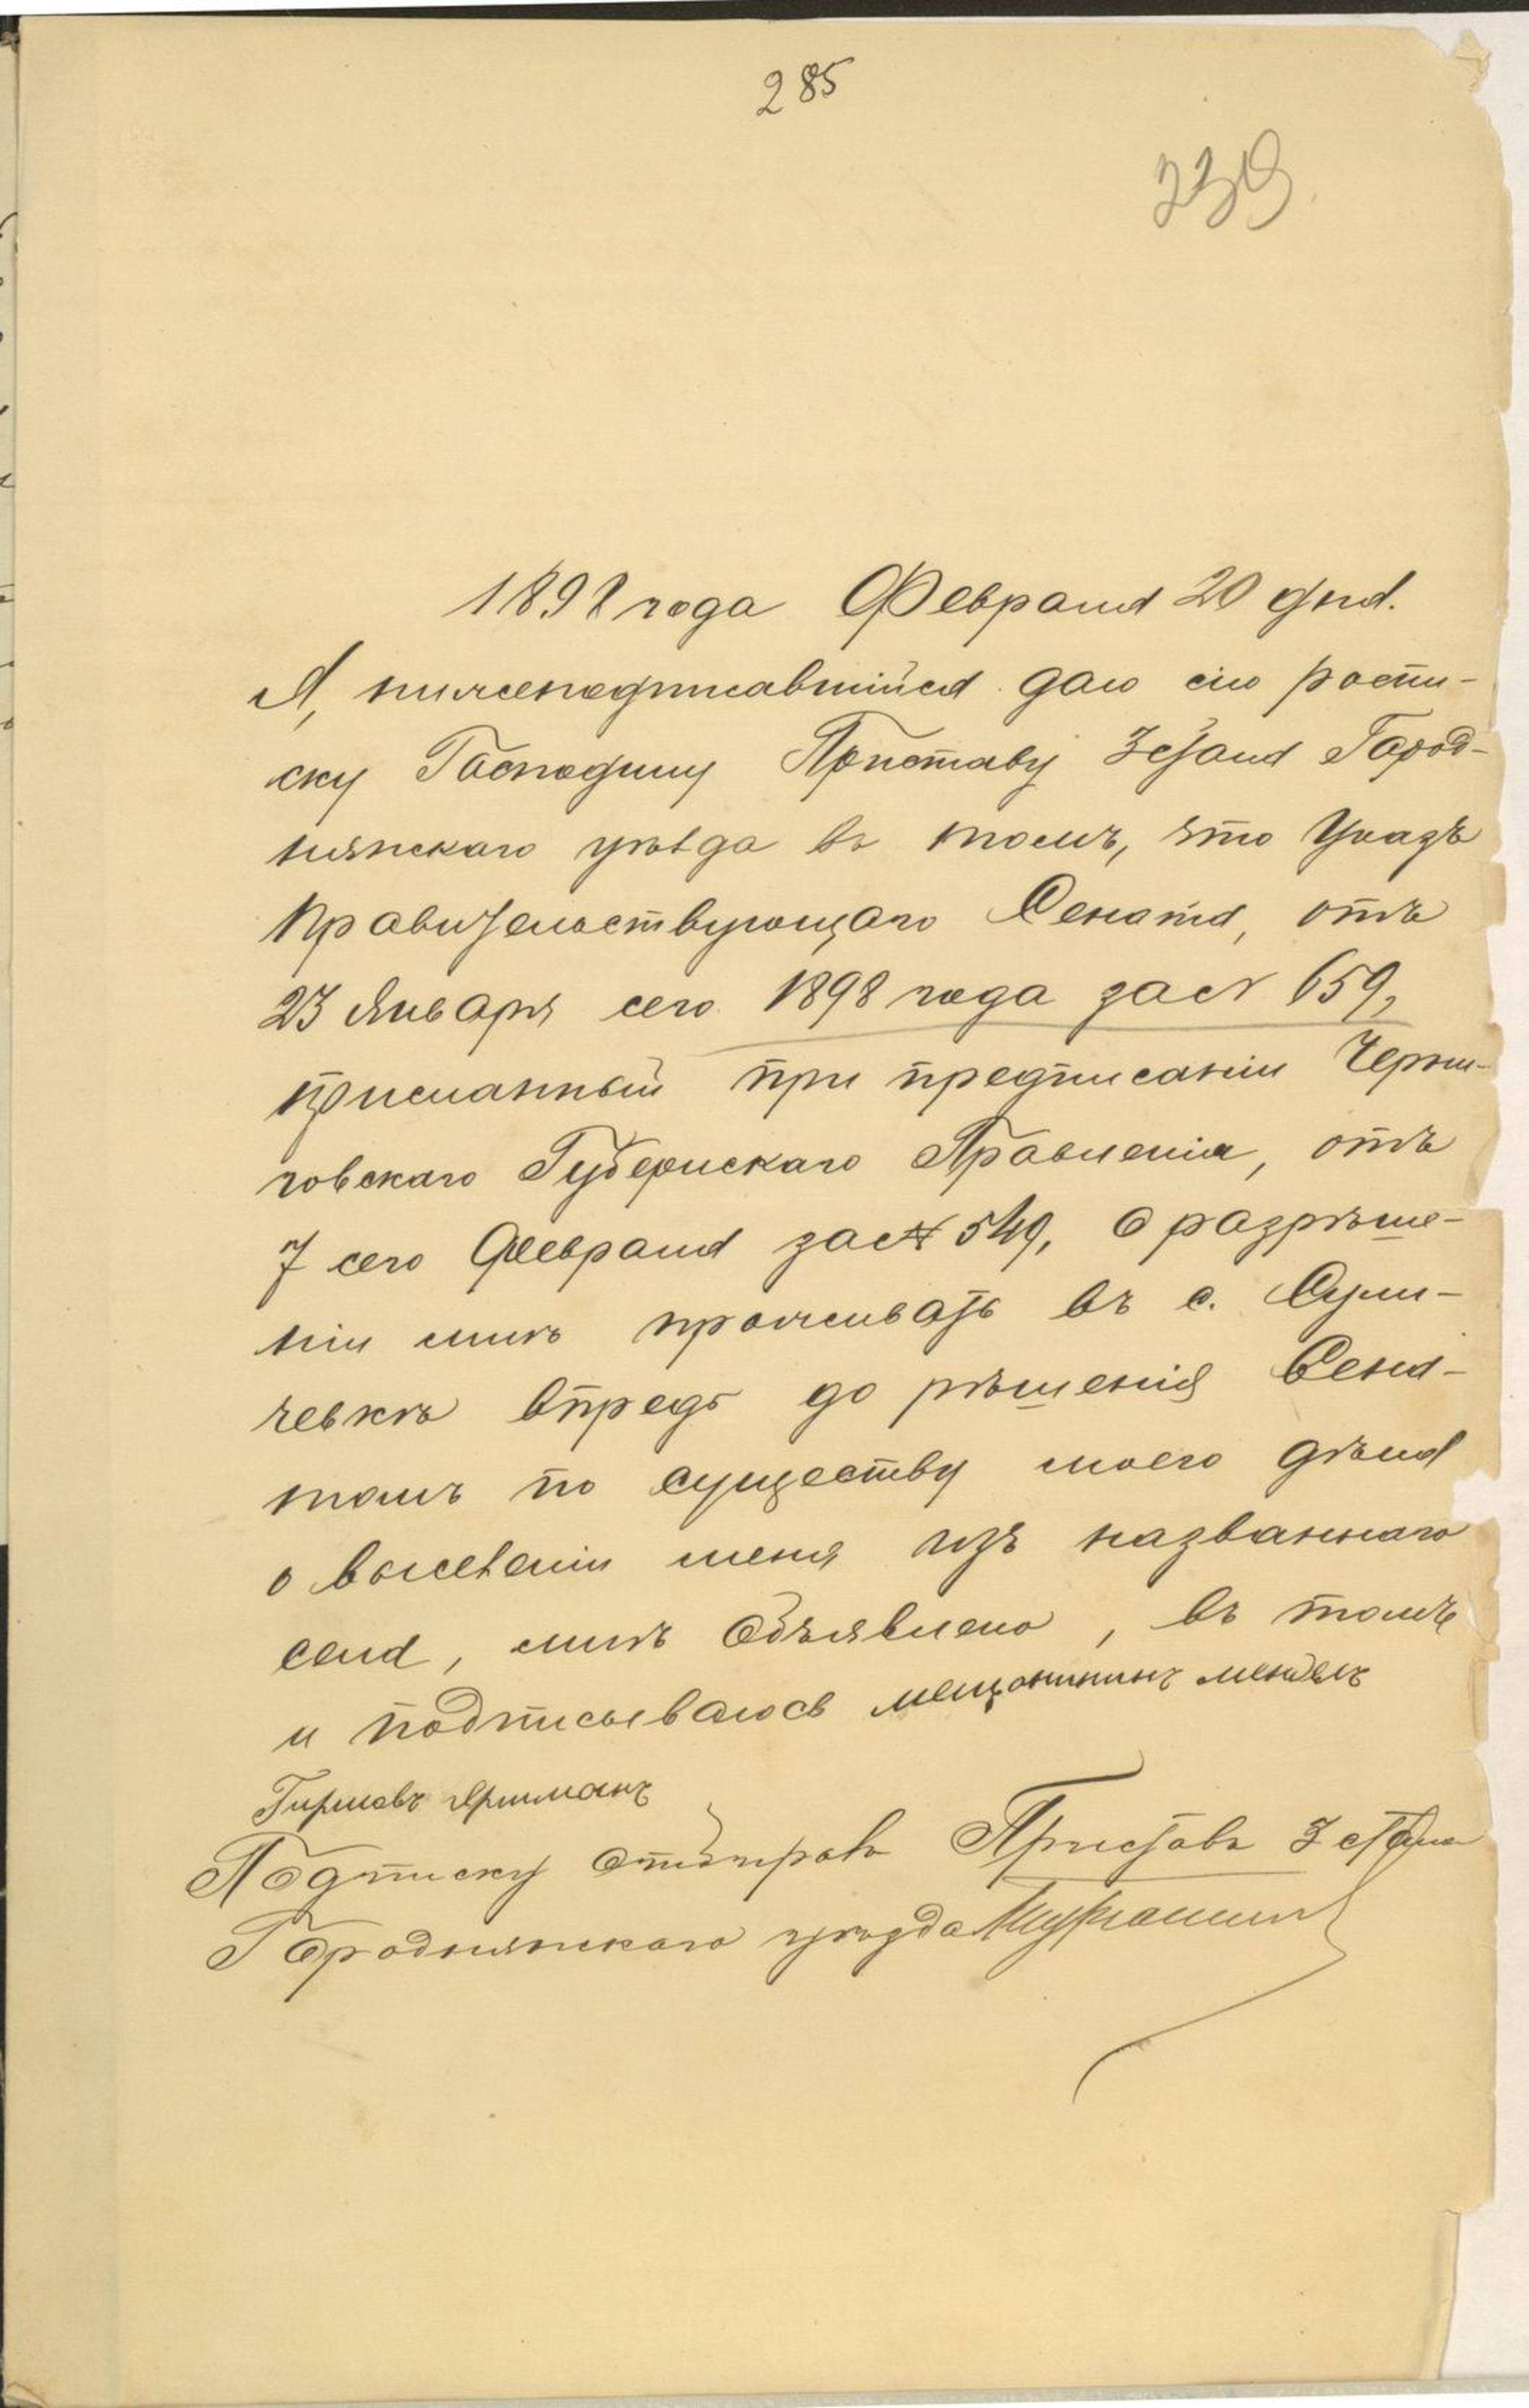 285
239
1898 года Февраля 20 дня.
Я, нижеподписавшійся даю сію роспи-
ску Господину Приставу 3 стана Город-
нянскаго уѣзда въ томъ, что Указъ
Правительствующаго Сената, отъ
23 Января сего 1898 года за № 659,
присланный при предписаніи Черни-
говскаго Губернскаго Правленія, отъ
7 сего Февраля за № 549, о разрѣше-
ніи мнѣ проживать въ с. Сули-
чевкѣ впредь до рѣшенія Сена-
томъ по существу моего дѣла
о выселеніи меня изъ названнаго
села, мнѣ объявлено, въ томъ
и подписываюсь мещонининъ мендель
Гиршовъ
Подписку отбиралъ Приставъ 3 стана
Городнянскаго уѣзда